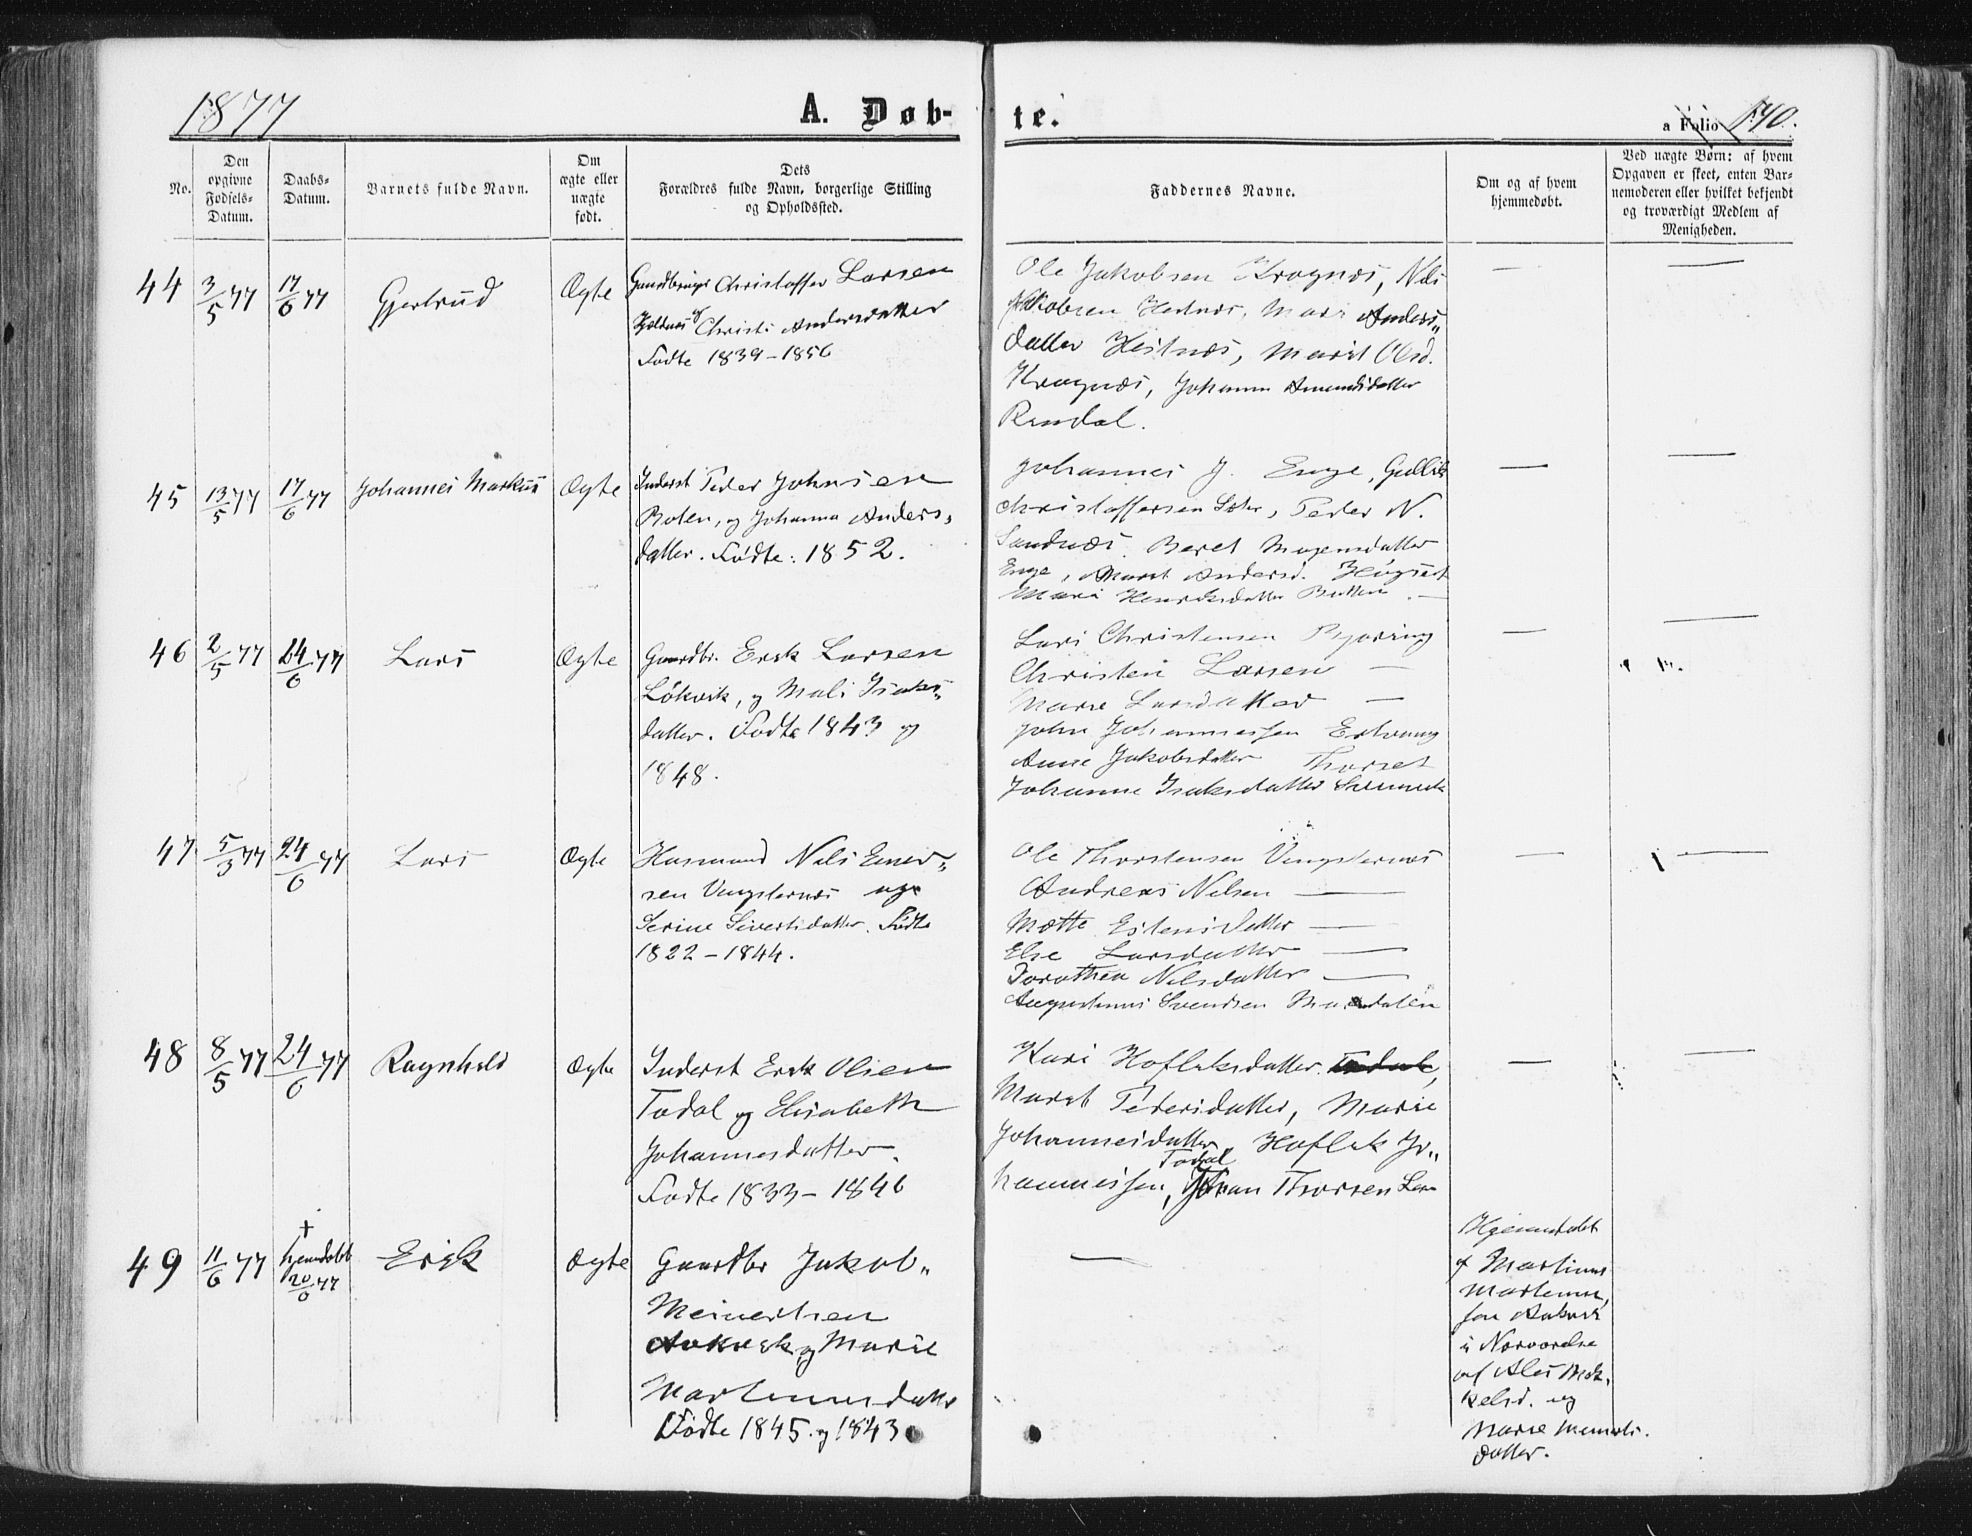 1877
A. Døb-
te.
a Folio 140.
No.
Den opgivne Fødsels-Datum.
Daabs-Datum.
Barnets fulde Navn.
Om ægte eller uægte født.
Dets
Forældres fulde Navn, borgerlige Stilling
og Opholdssted.
Faddernes Navne.
Om og af hvem
hjemmedøbt.
Ved uægte Børn: af hvem
Opgaven er skeet, enten Bar-
nemoderen eller hvilket bekjendt
og troværdigt Medlem af
Menigheden.
44 3/5 77 17/6 77 Gjertrud Ægte
Christoffer Larsen
og Christi Andersdatter
Fødte 1839-1856
Ole Jakobsen Kragnæs, Nils
Jakobsen Hestnæs, Mari Anders„
datter Hestnæs, Marit Olsd.
Kragnæs, Johanna Amundsdatter
Rendal.
45 13/5 77 17/6 77 Johannes Markus Ægte
Inderst Peder Johnsen
Boten, og Johanna Anders„
datter. Fødte: 1852.
Johannes J. Enge, Gullik
Christoffersen Sæter, Peder N.
Sandnæs. Beret Mogensdatter
Enge, Marit Andersd.
Mari Henriksdatter
46 2/5 77 24/6 77 Lars Ægte
Gaardbr. Erik Larsen
Løkvik, og Mali Isaks„
datter. Fødte 1843 og
1848.
Lars Christensen
Christen Larsen —
Marie Larsdatter —
John Johannessen
Anne Jakobsdatter Thorset
Johanne Isaksdatter
47 5/3 77 24/6 77 Lars Ægte
Husmand Nils Einer„
sen Vingsternæs og
Serine Sivertsdatter. Fødte
1822-1844.
Ole Thorstensen Vingsternæs
Andreas Nilsen —
Mætte Estensdatter —
Else Larsdatter —
Dorothea Nilsdatter —
Augustinus Svendsen
48 8/5 77 24/6 77 Ragnhild Ægte
Inderst Erik Olsen
Todal og Elisabeth
Johannesdatter.
Fødte 1833-1846
Kari Hoflaksdatter Todal,
Marit Pedersdatter, Marie
Johannesdatter, Hoflak Jo„
Todal
hannessen, Johan Thorsen
49 11/6 77 † hjemdøbt 20/6 77 Erik Ægte
Gaardbr Jakob„
Meinertsen
og Marie
Martinusdatter
Fødte 1845 og 1843
—
Hjemmedøbt
af Martinus
Martinus„
sen
i Nærværelse
af Ales Mik„
kelsd. og
Marie Meinerts„
datter.